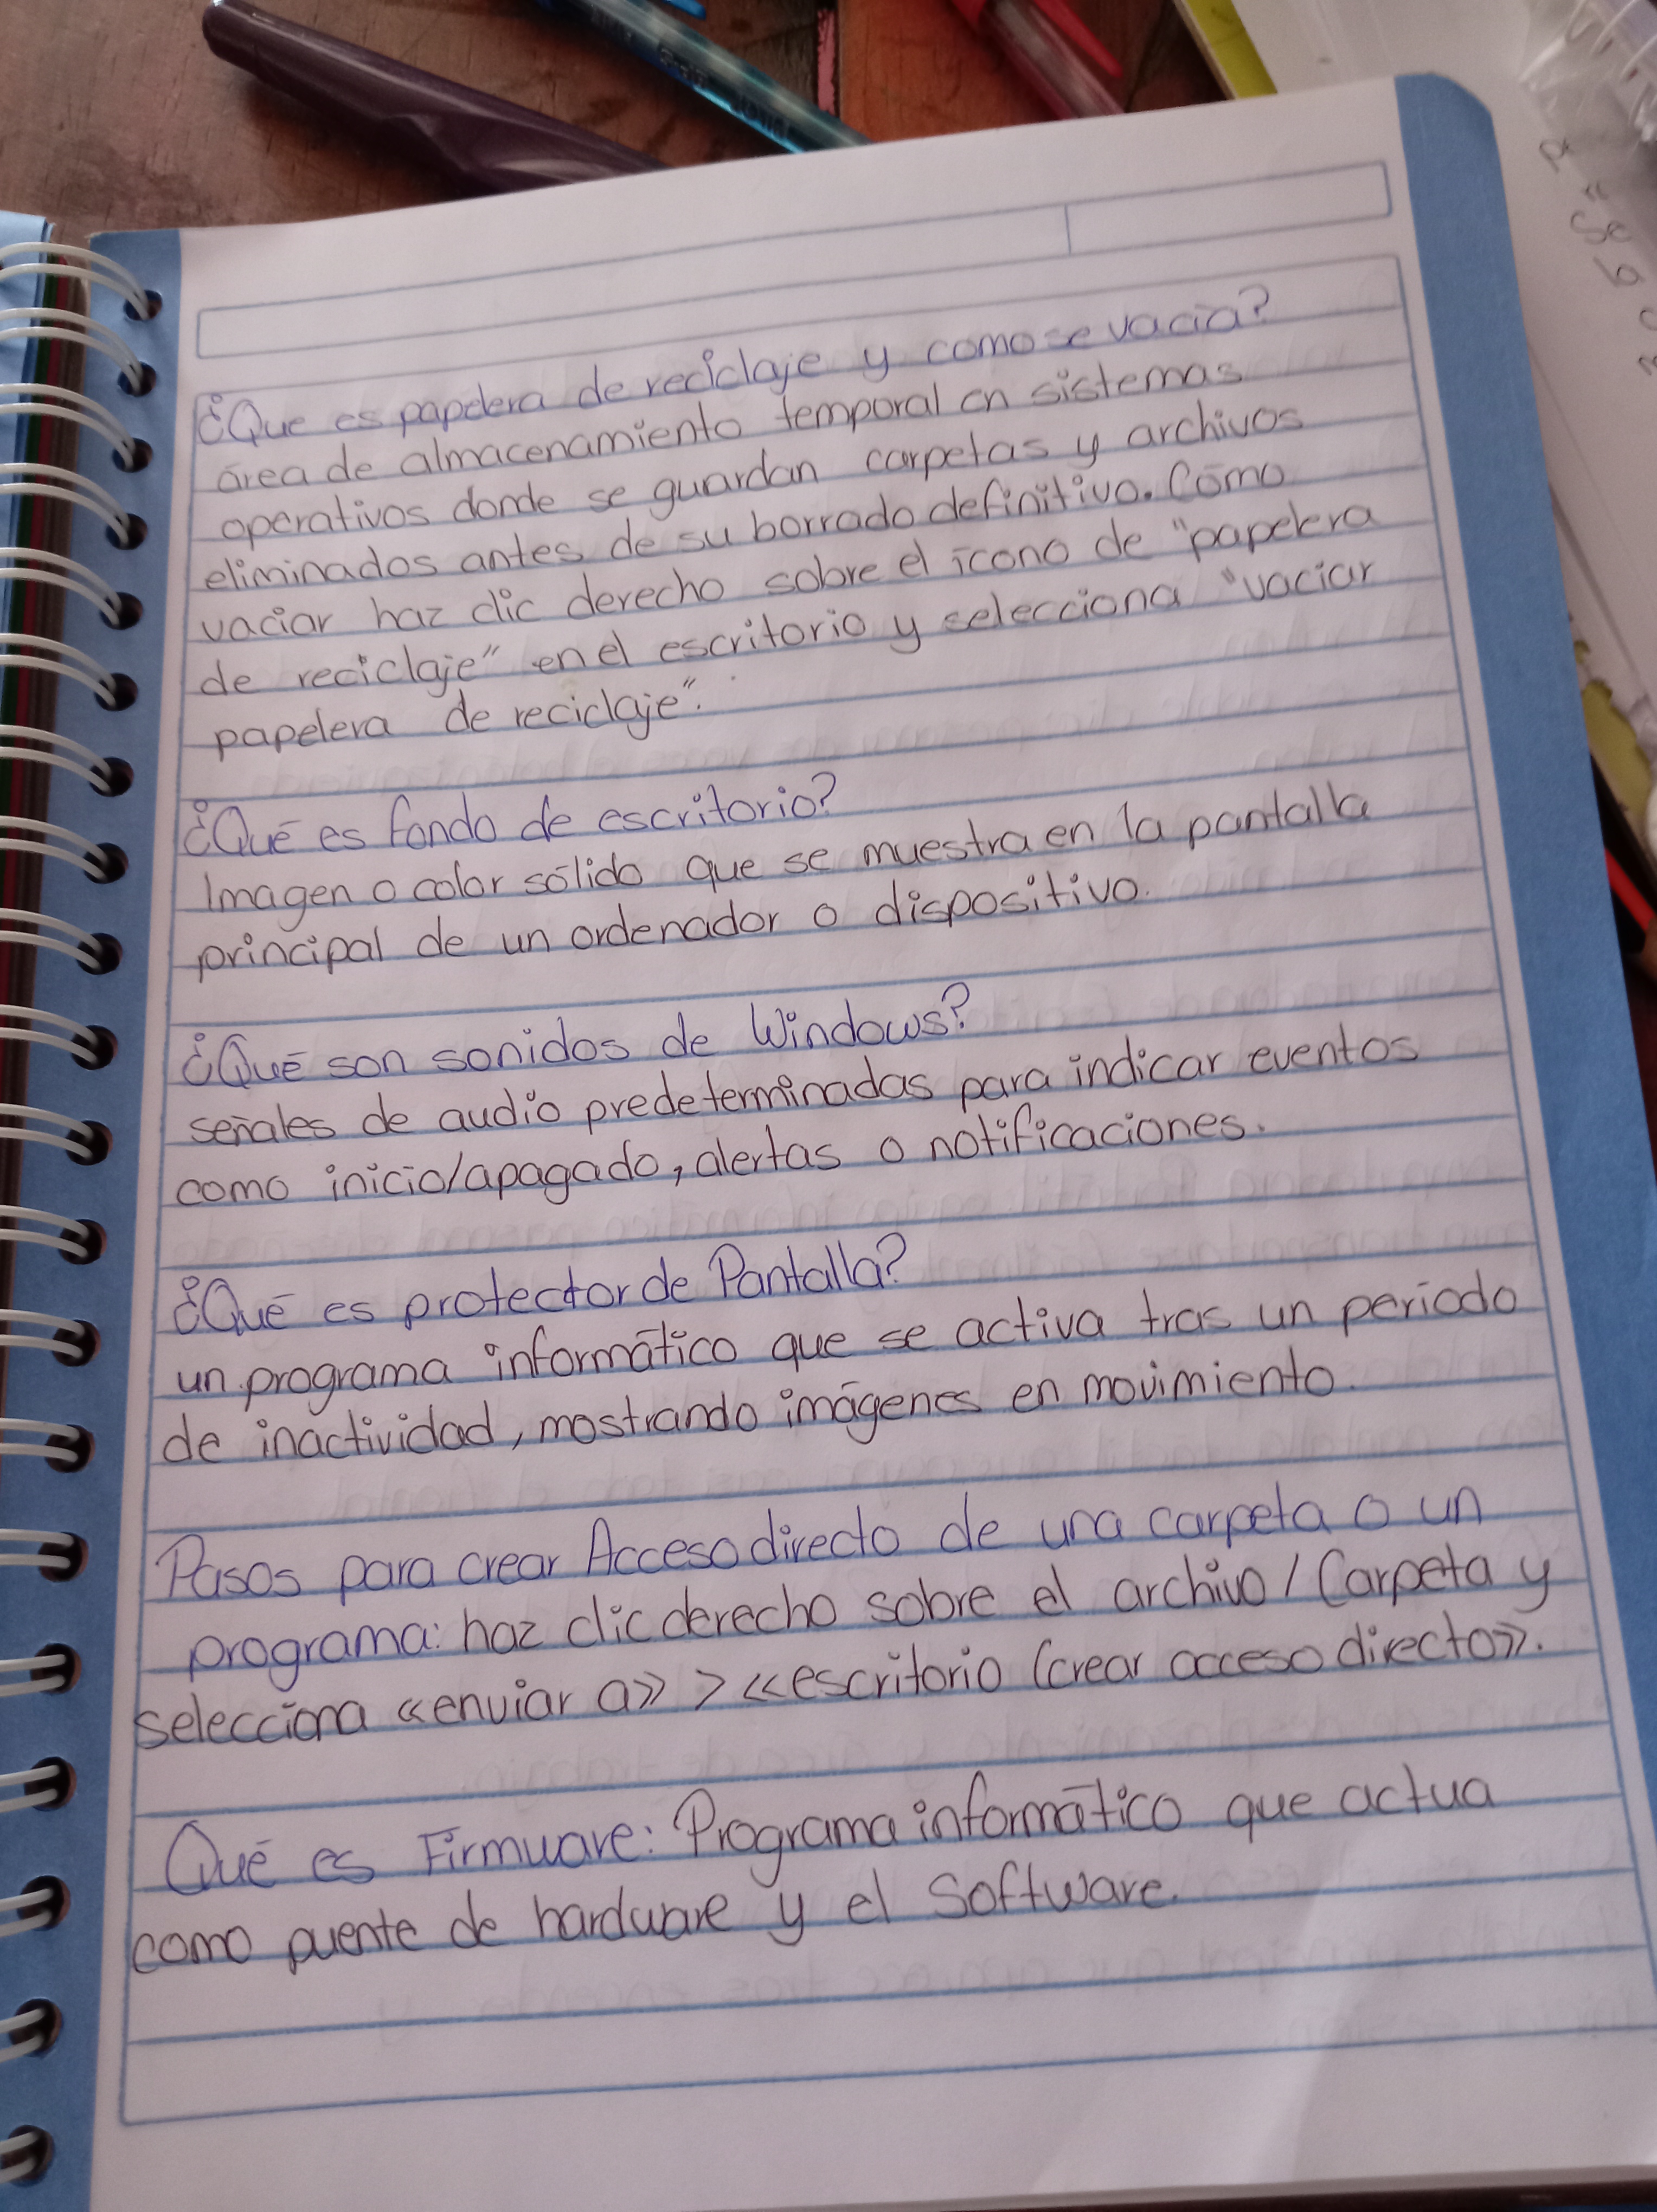 ¿Que es papelera de reciclaje y como se vacia?
área de almacenamiento temporal en sistemas
operativos donde se guardan carpetas y archivos
eliminados antes de su borrado definitivo. Cómo
vaciar haz clic derecho sobre el icono de "papelera
de reciclaje" en el escritorio y selecciona "vaciar
papelera de reciclaje".
¿Qué es fondo de escritorio?
Imagen o color sólido que se muestra en la pantalla
principal de un ordenador o dispositivo.
¿Qué son sonidos de Windows?
señales de audio predeterminadas para indicar eventos
como inicio/apagado, alertas o notificaciones.
¿Qué es protector de Pantalla?
un programa informático que se activa tras un periodo
de inactividad, mostrando imágenes en movimiento.
Pasos para crear Acceso directo de una carpeta o un
programa: haz clic derecho sobre el archivo / Carpeta y
selecciona «enviar a» > «escritorio (crear acceso directo».
Qué es Firmware: Programa informático que actua
como puente de hardware y el Software.